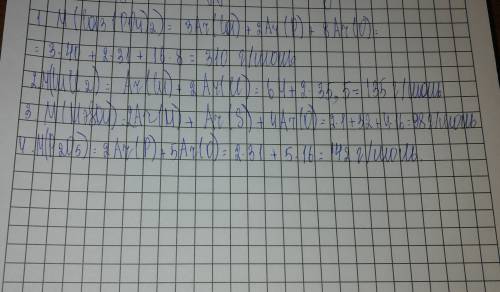 1. M(Ca3(PO4)2) = 3Ar(Ca) + 2Ar(P) + 8Ar(O) =
= 3·40 + 2·31 + 16·8 = 310 г/моль
2 M(CuCl2) = Ar(Cu) + 2Ar(Cl) = 64 + 2·35,5 = 135 г/моль
3 M(H2SO4) = 2Ar(H) + Ar(S) + 4Ar(O) = 2·1 + 32 + 4·16 = 98 г/моль
4. M(P2O5) = 2Ar(P) + 5Ar(O) = 2·31 + 5·16 = 142 г/моль.